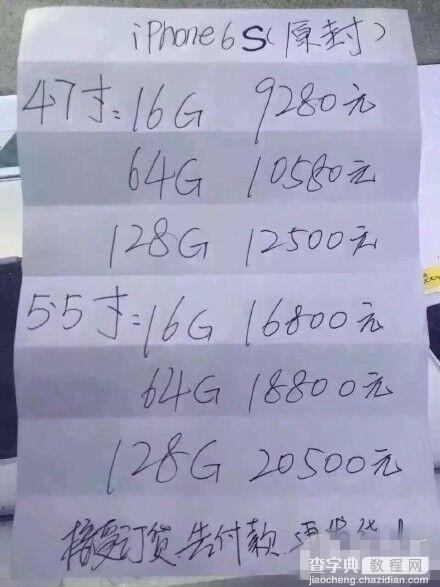 iPhone6S(原封)
4.7寸=16G 9280元
64G 10580元
128G 12500元
5.5寸=16G 16800元
64G 18800元
128G 20500元
接受订货 先付款 再发货!
查字典 教程网
jiaocheng.chazidian.com